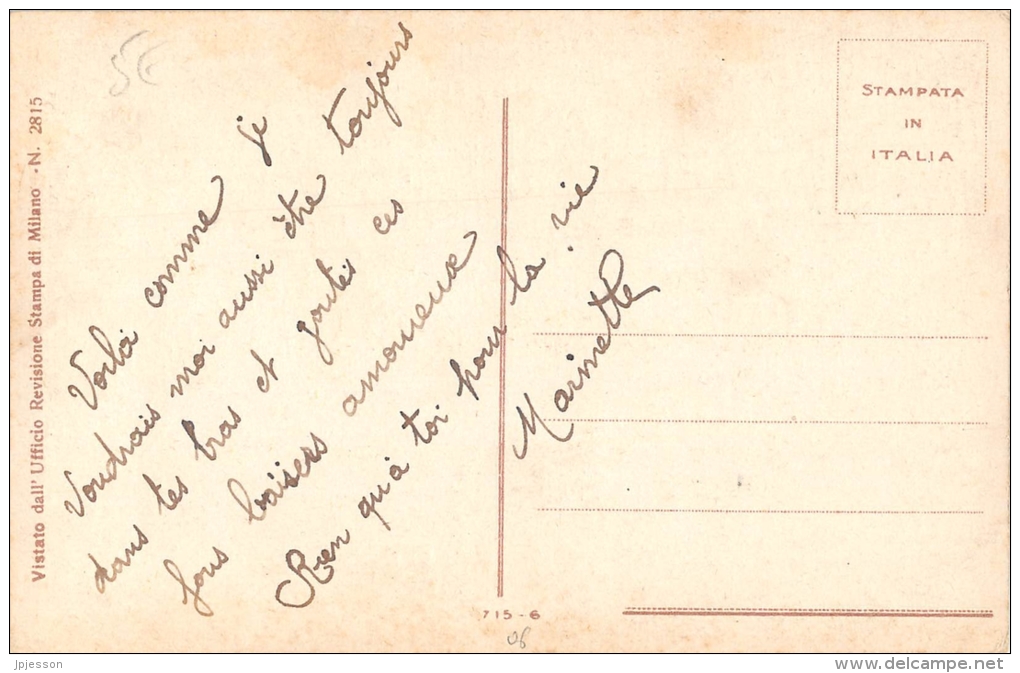 5€
Vistato dall' Ufficio Revisione Stampa di Milano - N. 2815
Voilà comme je
Voudrais moi aussi être toujours
dans tes bras et goutés ces
fous baisers amoureux
Rien qu'à toi pour la vie
Marinette
STAMPATA
IN
ITALIA
715-6
jpjesson
www.delcampe.net